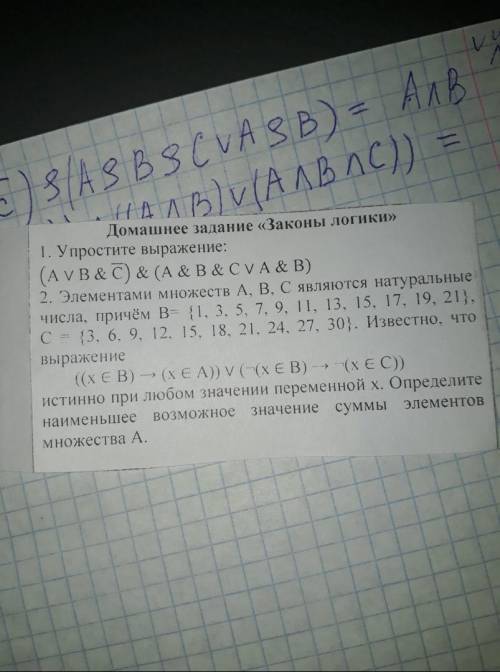 C̅) & (A&B&C∨A&B) = A∧B
((A∧B)∨(A∧B∧C)) =
Домашнее задание «Законы логики»
1. Упростите выражение:
(A ∨ B & C̅) & (A & B & C ∨ A & B)
2. Элементами множеств A, B, C являются натуральные
числа, причём B= {1, 3, 5, 7, 9, 11, 13, 15, 17, 19, 21},
C = {3, 6, 9, 12, 15, 18, 21, 24, 27, 30}. Известно, что
выражение
((x ∈ B) → (x ∈ A)) ∨ (¬(x ∈ B) → ¬(x ∈ C))
истинно при любом значении переменной x. Определите
наименьшее возможное значение суммы элементов
множества A.